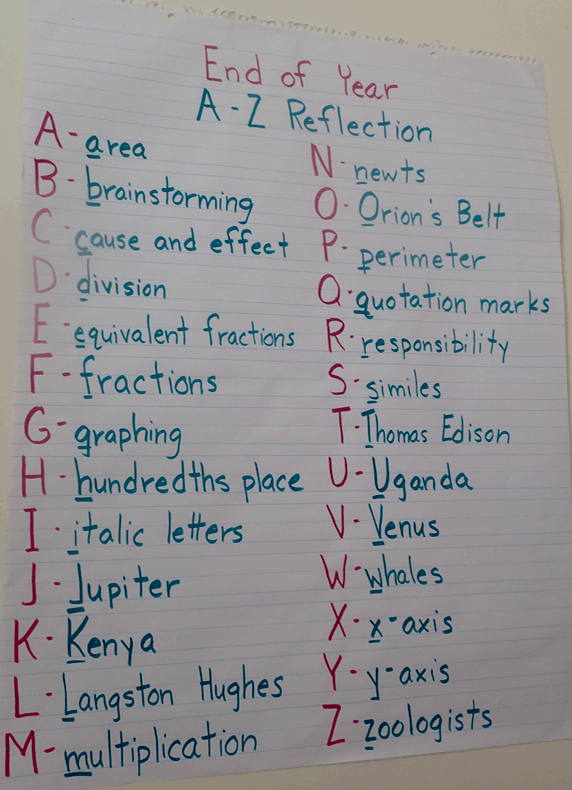 End of Year
A-Z Reflection
A- area
B- brainstorming
C- cause and effect
D- division
E- equivalent fractions
F- fractions
G- graphing
H- hundredths place
I- italic letters
J- Jupiter
K- Kenya
L- Langston Hughes
M- multiplication
N- newts
O- Orion's Belt
P- perimeter
Q- quotation marks
R- responsibility
S- similes
T- Thomas Edison
U- Uganda
V- Venus
W- whales
X- x-axis
Y- y-axis
Z- zoologists